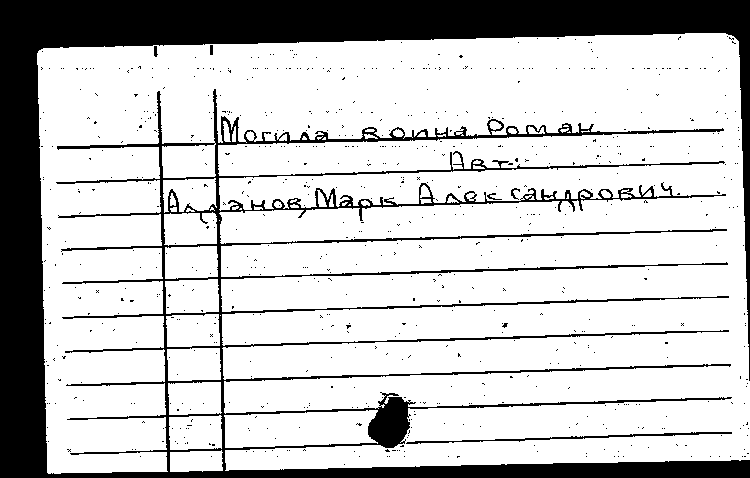 Могила воина. Роман
Авт.:
Алданов, Марк Александрович.